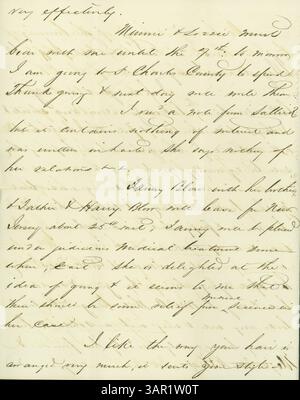 very effectively.
Minnie & Lizzie must
bear with me until the 7th. To morrow
I am going to St Charles County to spend
Thanksgiving & next day will write them
I rec'd a note from Sallie
but it contains nothing of interest and
was written in haste. She says nothing of
her relations
Fanny Blow with her brother
& Father & Harry Blow will leave for New
Jersey about 25th inst, Fanny will be placed
under judicious medical treatment some
where, East. She is delighted at the
idea of going & it seems to me that
there should be some relief from science in
her case.
I like the way your hair is
arranged very much, it suits your style.